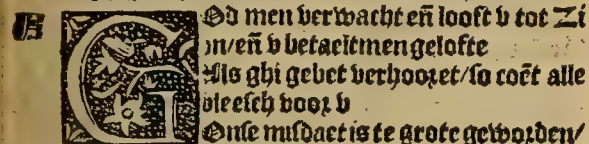 God men verwacht eñ looft v tot Zi
on/eñ v betaeltmen gelofte
Als ghi gebet verhooret/so coẽt alle
vleesch voor v
Onse misdaet is te grote geworden/